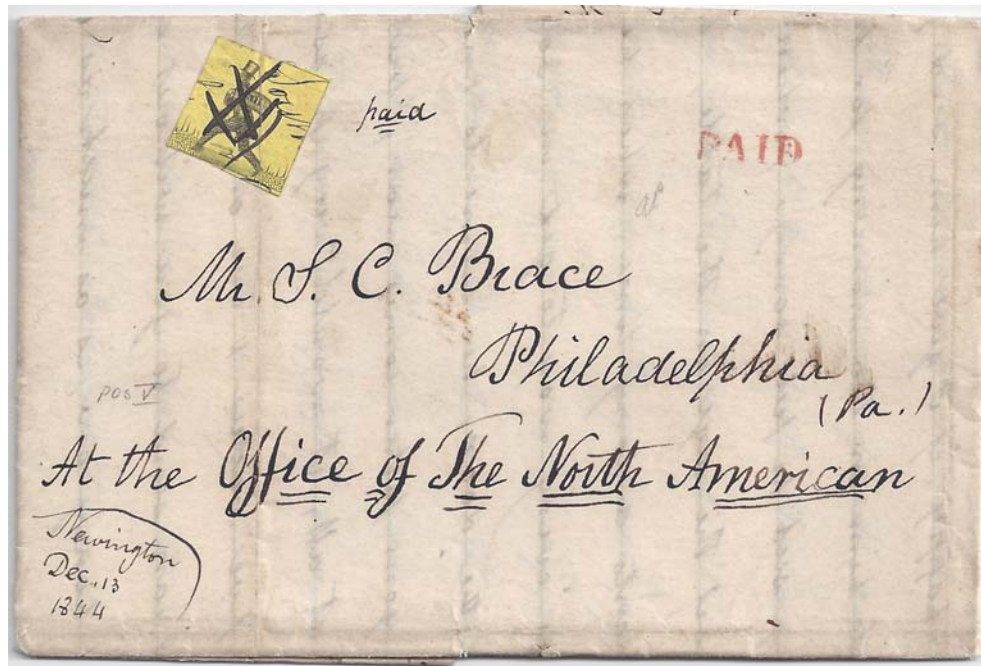 paid
PAID
Mr. S. C. Brace
Philadelphia
(Pa.)
POS V
At the Office of The North American
Newington
Dec. 13
1844